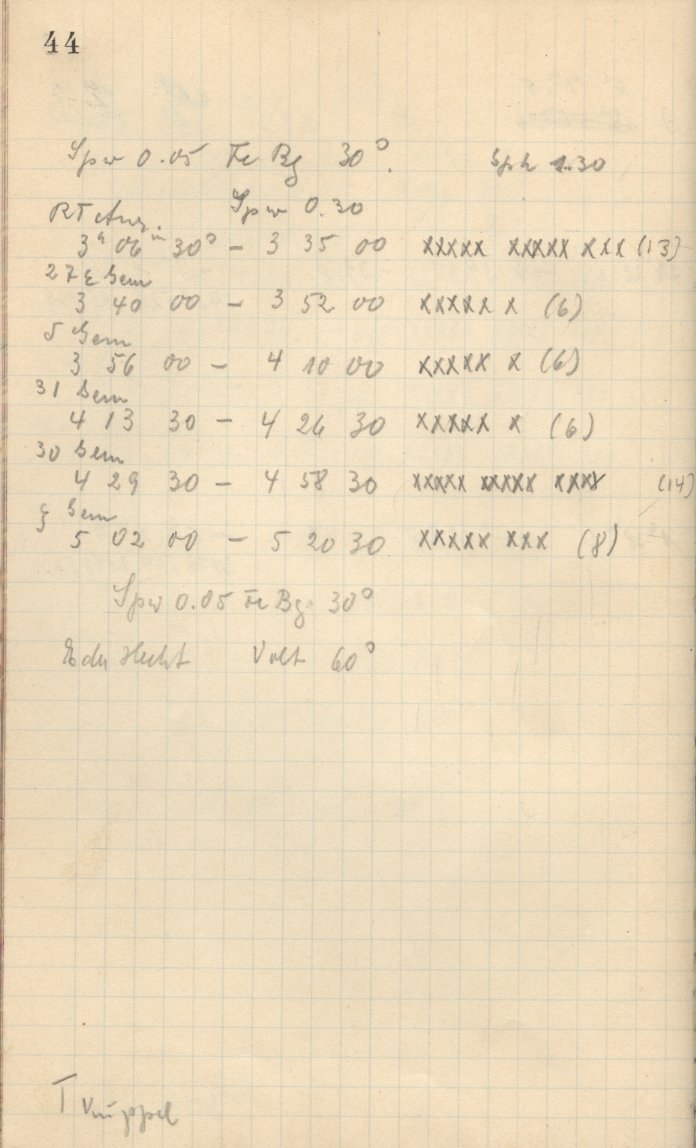 44
Spw 0.05 Fe Bg 30°. Sph 1.30
Spw 0.30
RT Aur.
3ʰ 06ᵐ 30ˢ – 3 35 00 xxxxx xxxxx xxx (13)
27 ε Gem
3 40 00 – 3 52 00 xxxxx x (6)
5 Gem
3 56 00 – 4 10 00 xxxxx x (6)
31 Gem
4 13 30 – 4 26 30 xxxxx x (6)
30 Gem
4 29 30 – 4 58 30 xxxxx xxxxx xxxx (14)
ξ Gem
5 02 00 – 5 20 30 xxxxx xxx (8)
Spw 0.05 Fe Bg 30°
Volt 60°
T